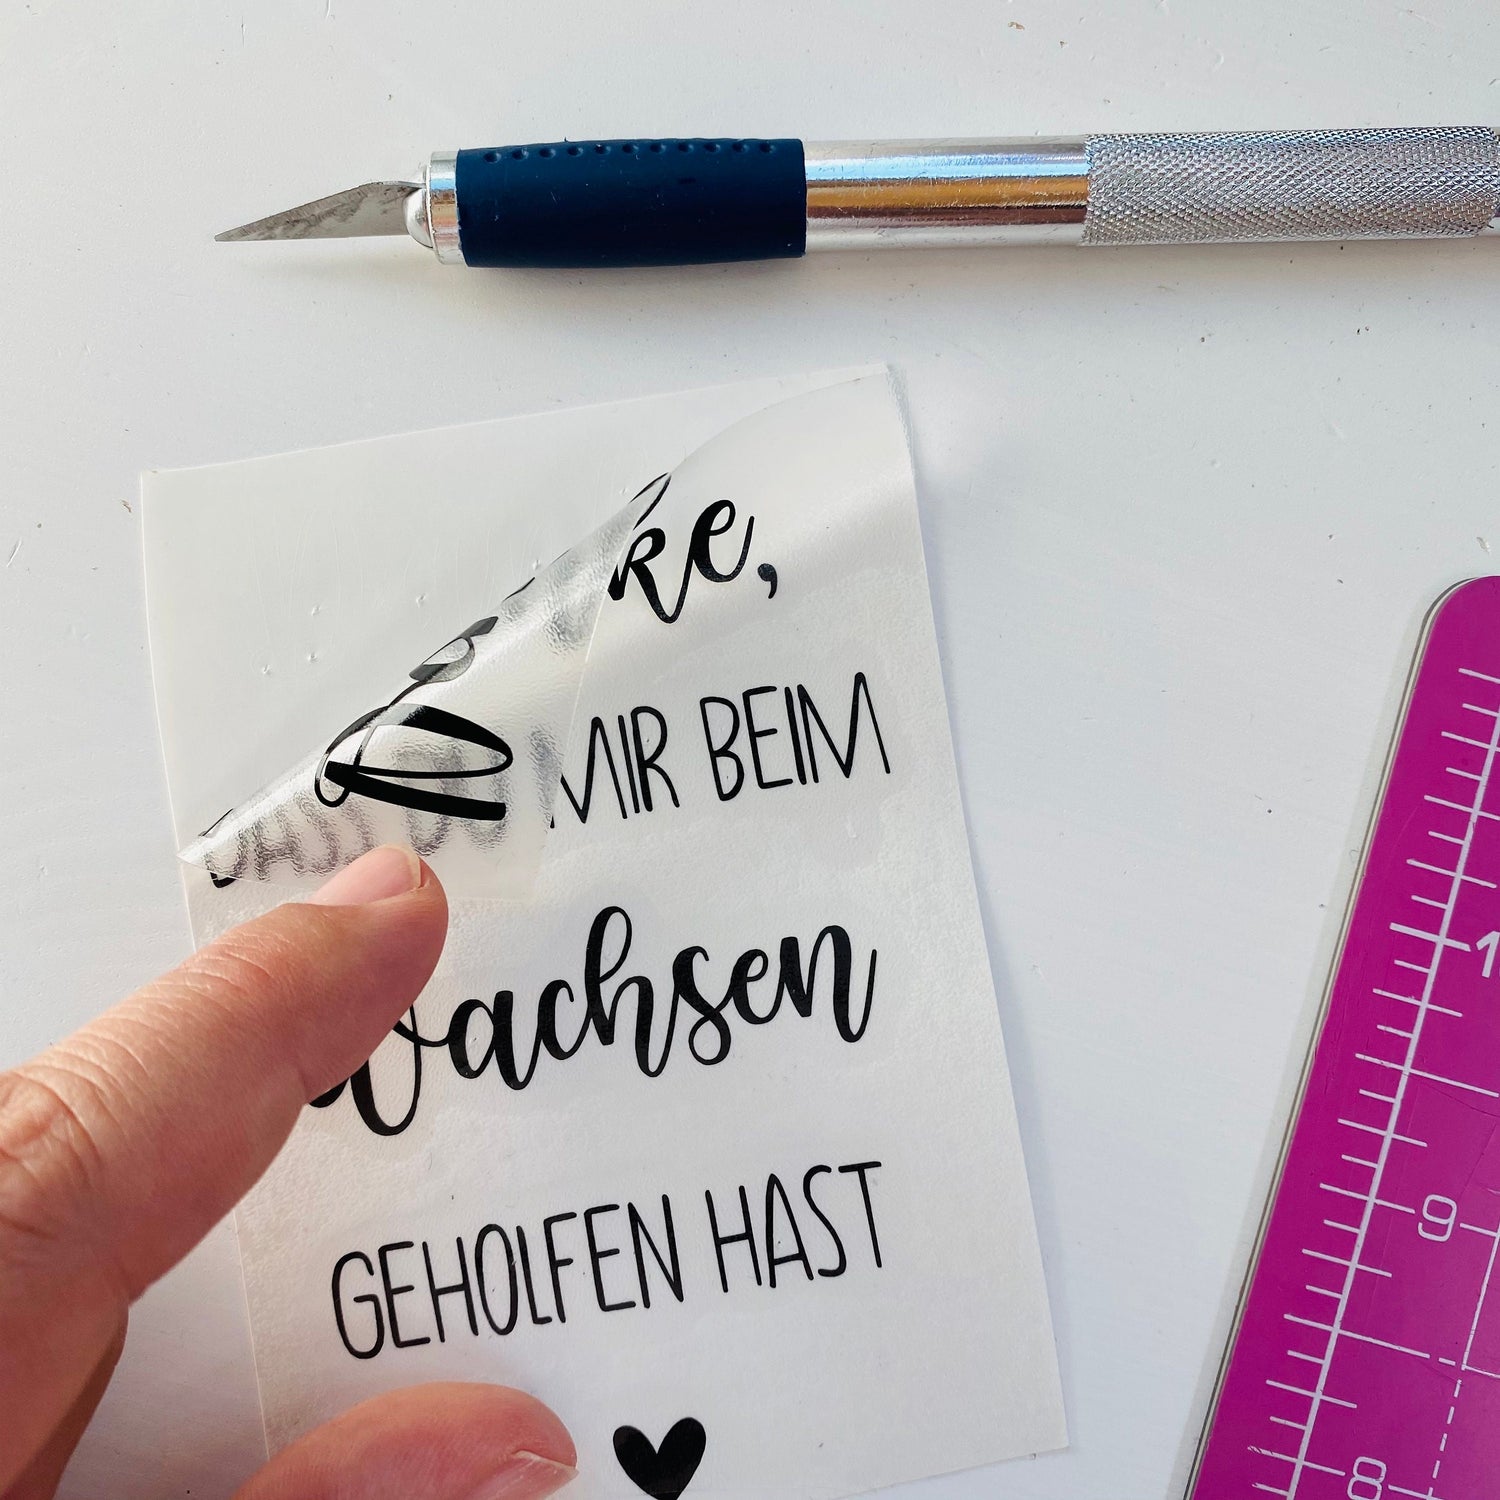 ke,
MIR BEIM
Wachsen
GEHOLFEN HAST
1
9
8